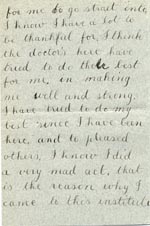 for me to go straight into
I know I have a lot to
be thankful for, I think
the doctor's here have
tried to do their best
for me, in making
me well and strong.
I have tried to do my
best since I have been
here, and to pleased
others, I know I did
a very mad act, that
is the reason why I
came to this institute